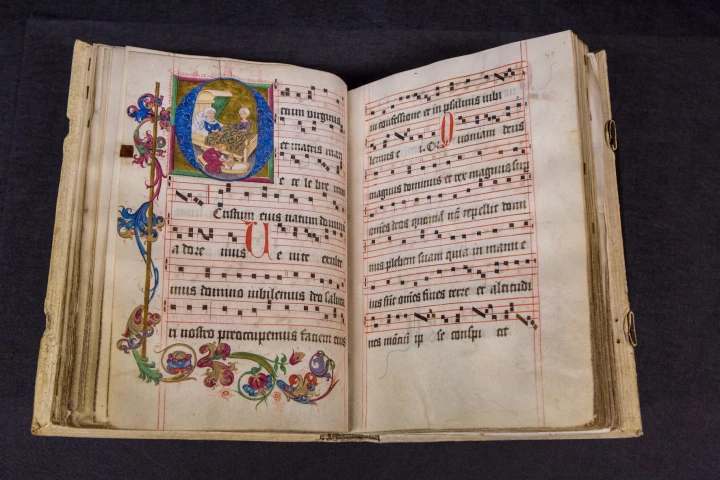 Ortum virginis
et matris mari
e ce le bre mus
Cristum eius natum dominu
a dore mus Ve nite exulte
mus domino iubilemus deo saluta
ri nostro preocupemus faciem eius
in confessione et in psalmis iubi
lemus e i. Quoniam deus
magnus dominus et rex magnus sup
omes deos quoniā nō repellit domi
nus plebem suam quia in manu e
ius sūt omēs fines terre et altitudi
nes mōciū ip se conspi cit